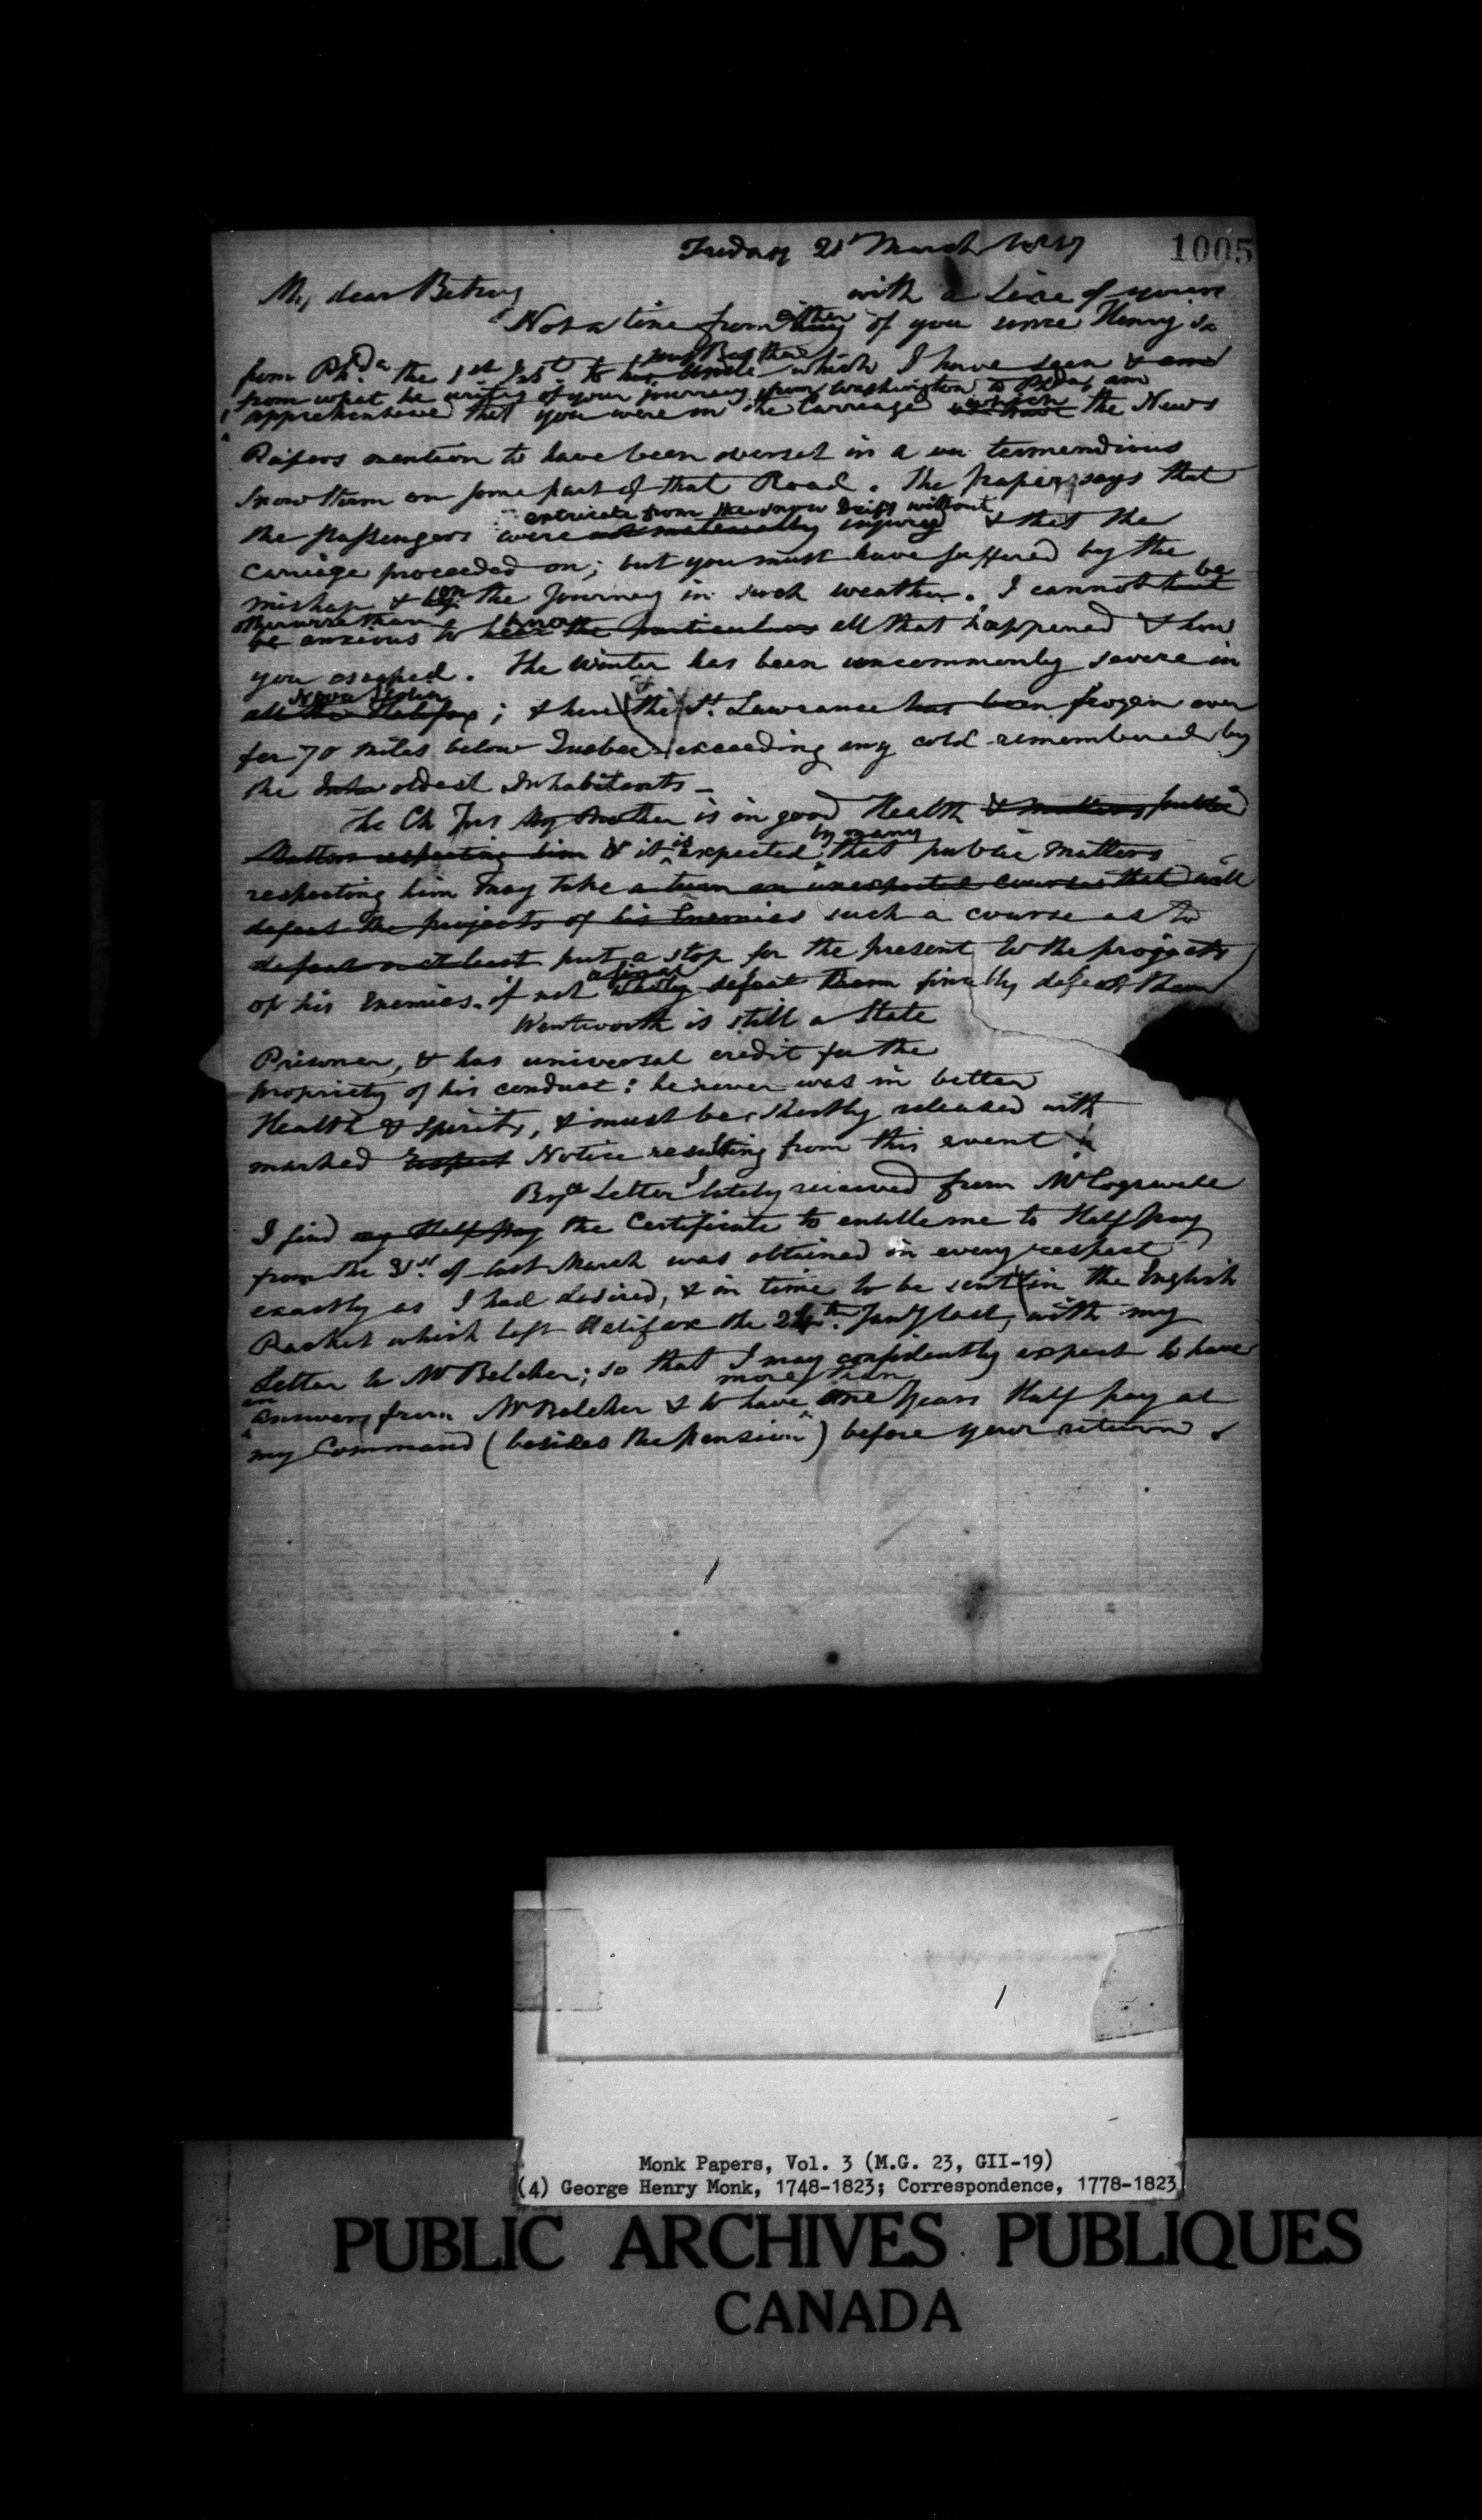 Friday 21st March 1817
1005
My dear Betsy
with a line of yours
Not a line from either any of you since Henry's
from Phda. the 1st Inst. to his Uncle your Brother which I have seen & am
from what he writes of your journey from Washington to Phda, am
I apprehensive that you were in the Carriage which the News
Papers mention to have been overset in a tremendious
Snow Storm on some part of that Road. The papers says that
extricate from the snow Drift without
the passengers were not materially injury & that the
Carriage proceeded on; but you must have suffered by the
mishap & on the Journey in such weather. I cannot but be
otherwise than
be anxious to hear know the particulars all that happened & how
you escaped. The Winter has been uncommonly severe in
Nova Scotia
all the Halifax; & here the St. Lawrance has been frozen over
for 70 miles below Quebec exceeding any cold remembered by
the Inha oldest Inhabitants –
The Ch Jus my Brother is in good Health & matters public
Matters respecting him & it is expected by many that public matters
respecting him may take a turn an unexpected course that will
defeat the projects of his Enemies such a course as to
defeat or at least put a stop for the present to the projects
of his Enemies. if not defeat them finally defeat them
Wentworth is still a State
Prisoner, & has universal credit for the
propriety of his conduct: he never was in better
Health & Spirits, & must be shortly released with
marked Respect Notice resulting from this event
By a Letter I lately received from Mr Cogswell
I find my Half pay the Certificate to entitle me to Half pay
from the 31st. of last March was obtained in every respect
exactly as I had desired, & in time to be sent in the English
Packet which left Halifax the 24th. Jany last, with my
Letter to Mr Belcher; so that I may confidently expect to have
an answer from Mr Belcher & to have more than one Years Half pay at
my Command (besides the pension) before your return &
Monk Papers, Vol. 3 (M.G. 23, GII-19)
(4) George Henry Monk, 1748-1823; Correspondence, 1778-1823
PUBLIC ARCHIVES PUBLIQUES
CANADA